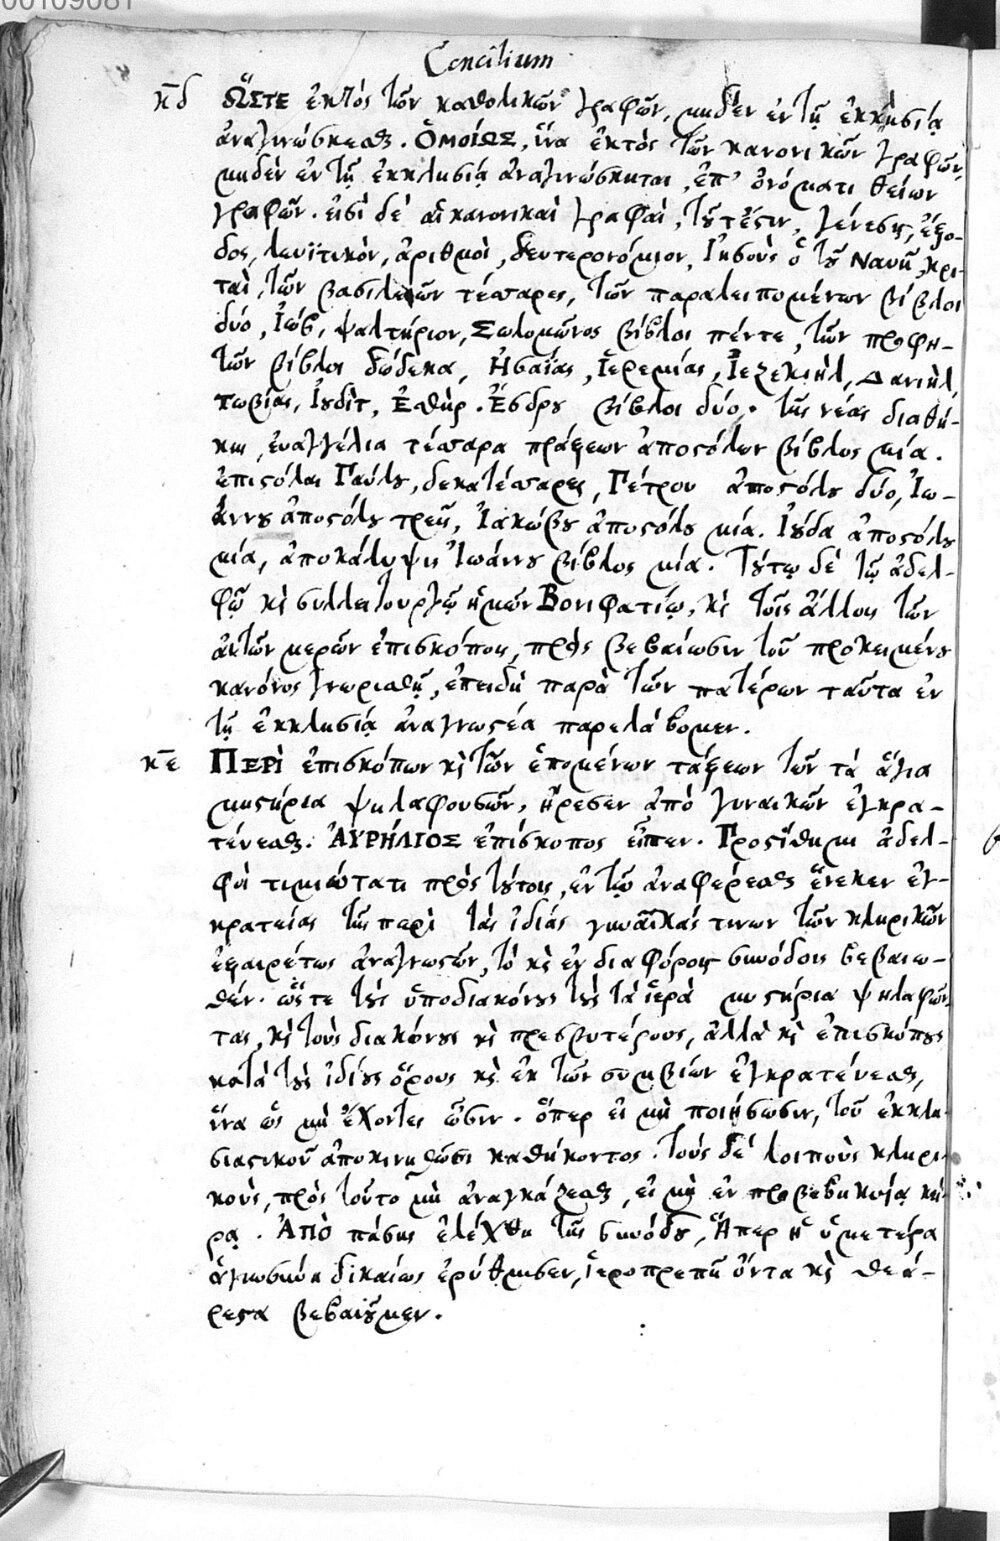 00109081
Concilium
κ̅δ ὭΣΤΕ ἐκτὸς τῶν καθολικῶν γραφῶν, μηδὲν ἐν τῇ ἐκκλησίᾳ
ἀναγινώσκεσθαι. ὉΜΟΊΩΣ, ἵνα ἐκτὸς τῶν κανονικῶν γραφῶν,
μηδὲν ἐν τῇ ἐκκλησίᾳ ἀναγινώσκηται, ἐπ' ὀνόματι θείων
γραφῶν. εἰσὶ δὲ αἱ κανονικαὶ γραφαὶ, τουτέστιν, γένεσις, ἔξο-
δος, λευϊτικὸν, ἀριθμοὶ, δευτερονόμιον, Ἰησοὺς ὁ τοῦ Ναυῆ, κρι-
ταὶ, τῶν βασιλειῶν τέσσαρες, τῶν παραλειπομένων βίβλοι
δύο, Ἰὼβ, ψαλτήριον, Σολομῶνος βίβλοι πέντε, τῶν προφη-
τῶν βίβλοι δώδεκα, Ἡσαΐας, Ἱερεμίας, Ἰεζεκιὴλ, Δανιὴλ,
τωβίας, Ἰουδὶτ, Ἐσθὴρ. Ἔσδρου βίβλοι δύο. τῆς νέας διαθή-
κης, εὐαγγέλια τέσσαρα πράξεων ἀποστόλων βίβλος μία.
ἐπιστόλαι Παύλου, δεκατέσσαρες, Πέτρου ἀποστόλου δύο, Ἰω-
άννου ἀποστόλου τρεῖς, Ἰακώβου ἀποστόλου μία. Ἰούδα ἀποστόλου
μία, ἀποκάλυψις Ἰωάννου βίβλος μία. Τούτῳ δὲ τῷ ἀδελ-
φῷ καὶ συλλειτουργῷ ἡμῶν Βονιφατίῳ, καὶ τοῖς ἄλλοις τῶν
αὐτῶν μερῶν ἐπισκόποις, πρὸς βεβαίωσιν τοῦ προκειμένου
κανόνος γνωρισθῇ, ἐπειδὴ παρὰ τῶν πατέρων ταῦτα ἐν
τῇ ἐκκλησίᾳ ἀναγνωστέα παρελάβομεν.
κ̅ε ΠΕΡῚ ἐπισκόπων καὶ τῶν ἑπομένων τάξεων τῶν τὰ ἅγια
μυστήρια ψηλαφουσῶν, ἤρεσεν ἀπὸ γυναικῶν ἐγκρα-
τένεσθαι. ἈΥΡΉΛΙΟΣ ἐπίσκοπος εἶπεν. Προστίθημι ἀδελ-
φοὶ τιμιώτατι πρὸς τούτοις, ἐν τῷ ἀναφέρεσθαι ἕνεκεν ἐγ-
κρατείας τῆς περὶ τὰς ἰδίας γυναῖκας τινων τῶν κληρικῶν
ἐξαιρέτως ἀναγνωστῶν, τὸ καὶ ἐν διαφόροις συνόδοις βεβαιω-
θέν. ὥστε τοὺς ὑποδιακόνους τοὺς τὰ ἱερὰ μυστήρια ψηλαφῶν-
τας, καὶ τοὺς διακόνους καὶ πρεσβυτέρους, ἀλλὰ καὶ ἐπισκόπους
κατὰ τοὺς ἰδίους ὅρους καὶ ἐκ τῶν συμβίων ἐγκρατένεσθαι,
ἵνα ὡς μὴ ἔχοντες ὦσιν. ὅπερ εἰ μὴ ποιήσωσιν, τοῦ ἐκκλη-
σιαστικοῦ ἀποκινηθῶσι καθήκοντος. τοὺς δὲ λοιποὺς κληρι-
κοὺς, πρὸς τοῦτο μὴ ἀναγκάζεσθαι, εἰ μὴ ἐν προβεβηκυίᾳ κή-
ρᾳ. ἈΠῸ πάσης ἐλέχθη τῆς συνόδου, Ἅπερ ἡ ὑμετέρα
ἁγιωσύνη δικαίως ἐρύθμισεν, ἱεροπρεπῆ ὄντα καὶ θεά-
ρεστα βεβαιοῦμεν.